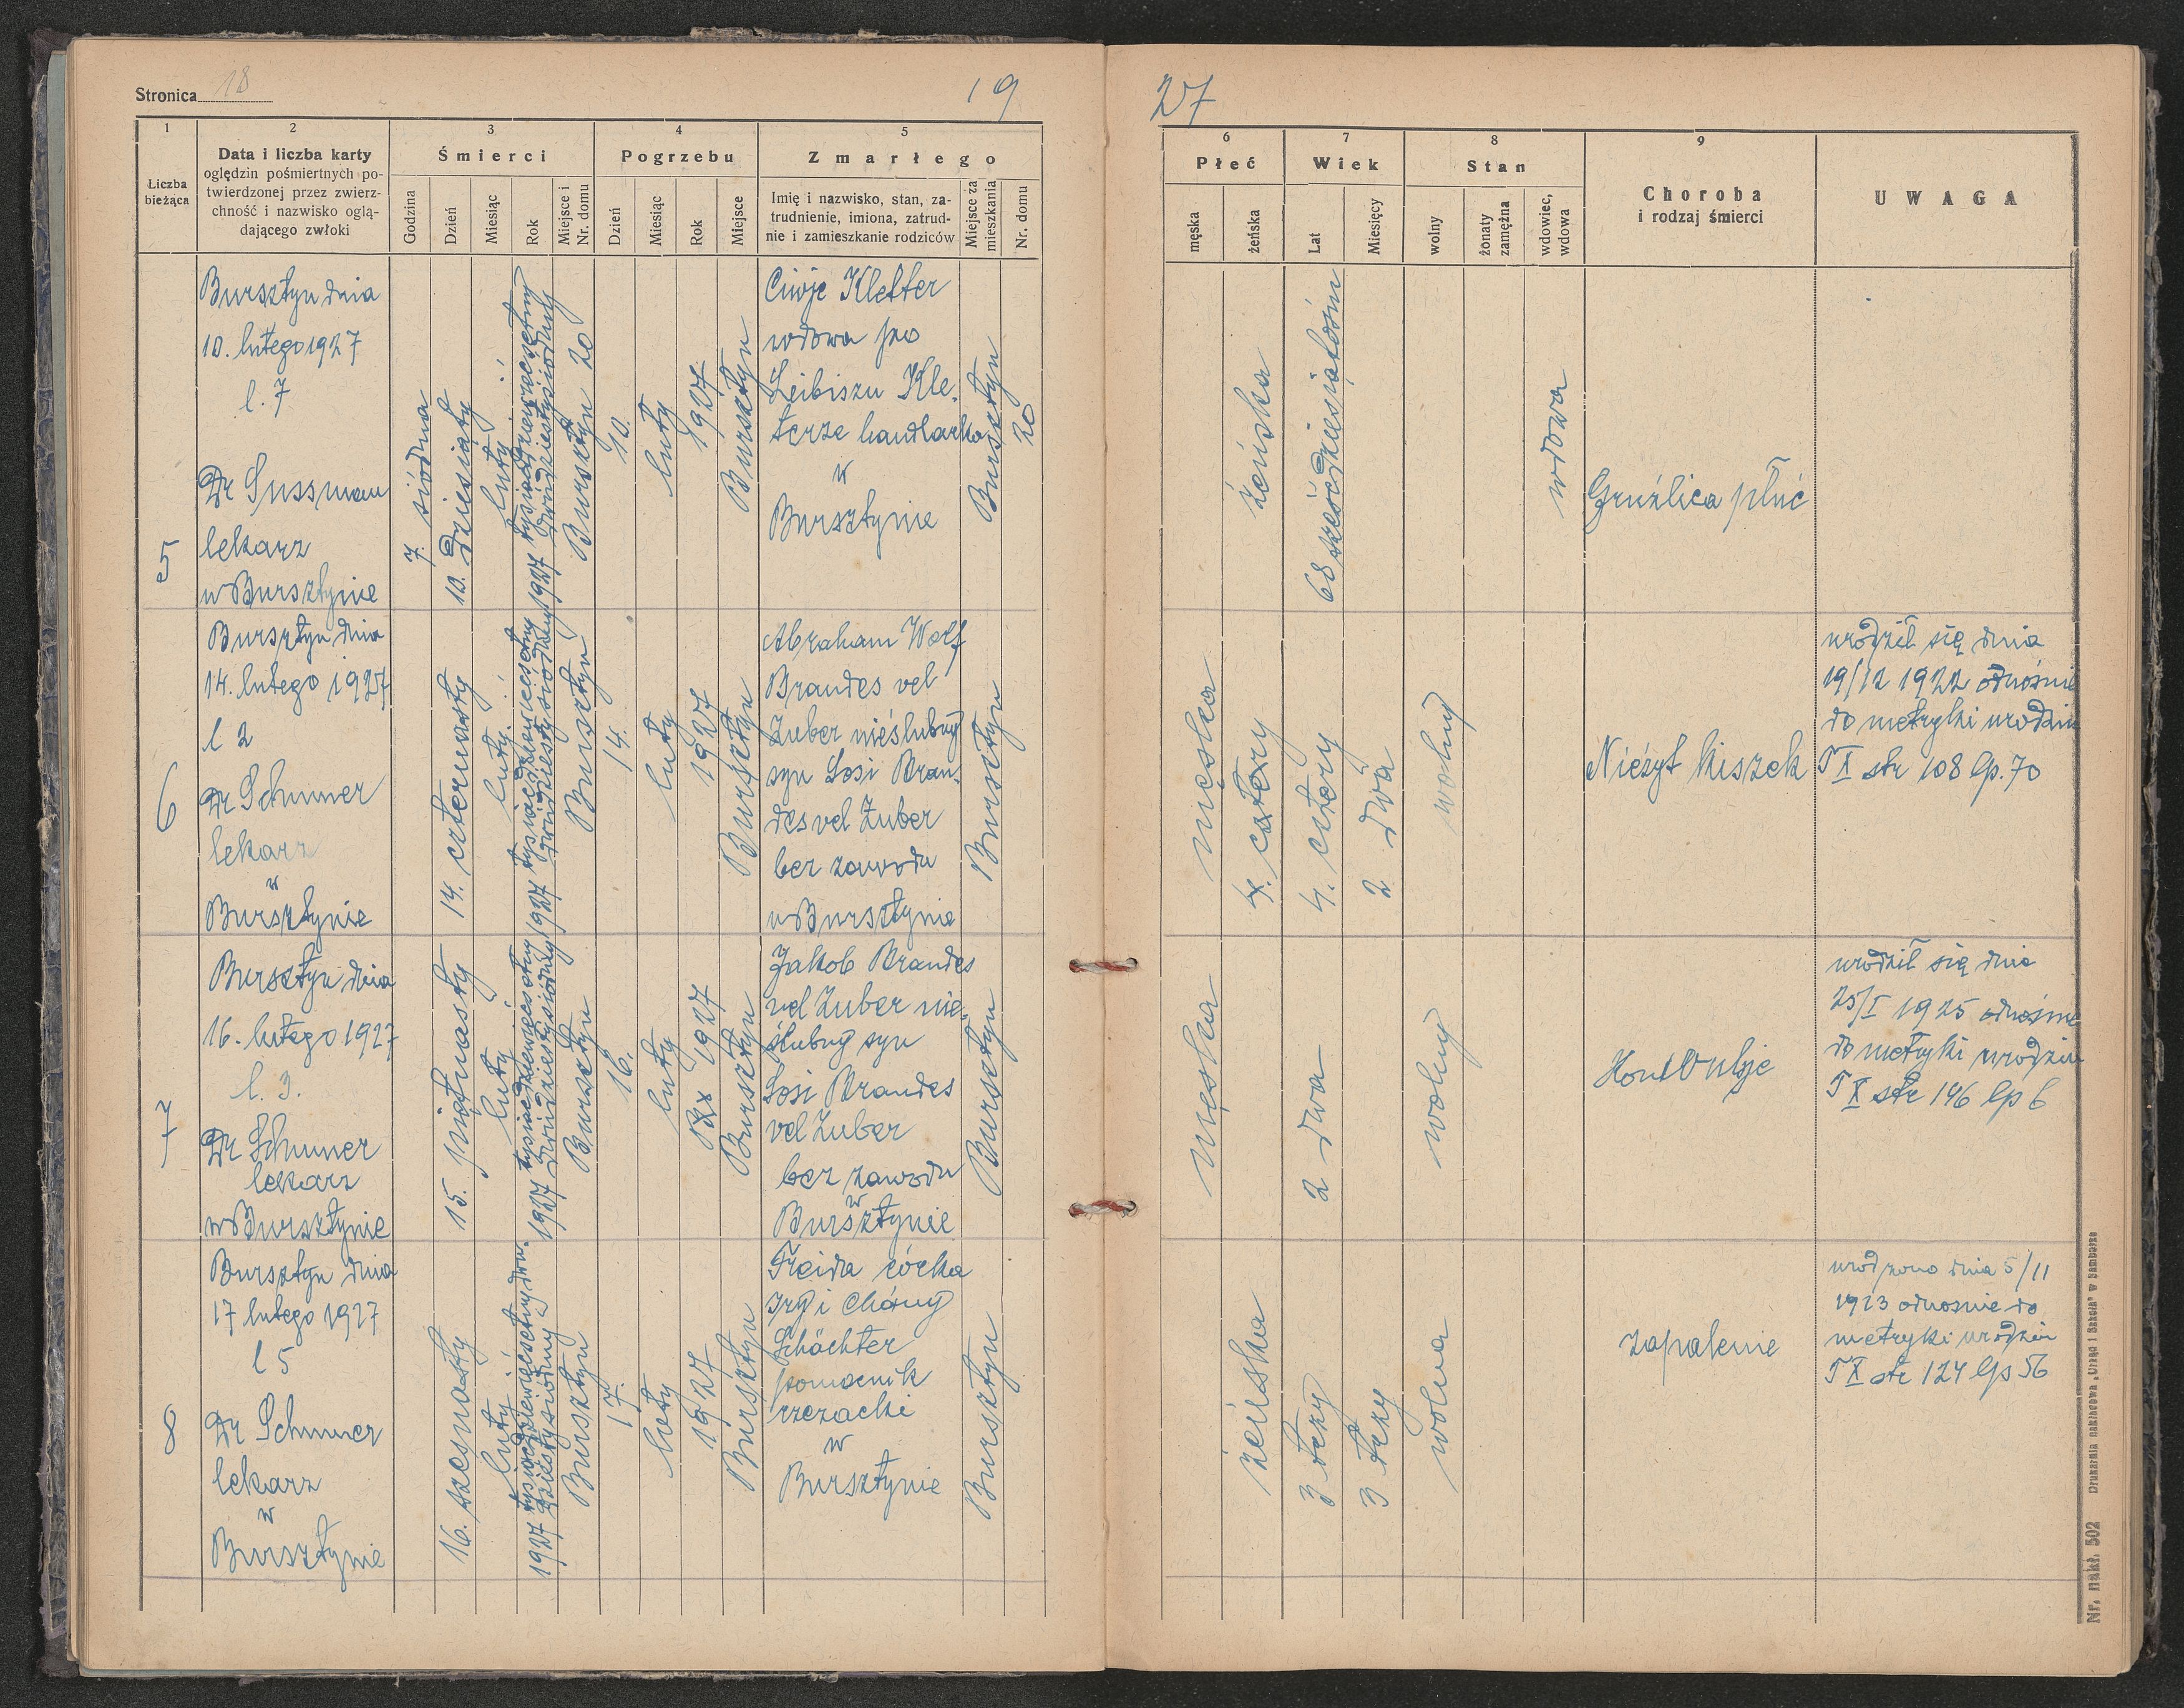 Stronica 18
19
27
1
2
3
4
5
6
7
8
9
Liczba
bieżąca
Data i liczba karty
oględzin pośmiertnych po-
twierdzonej przez zwierz-
chność i nazwisko oglą-
dającego zwłoki
Śmierci
Godzina
Dzień
Miesiąc
Rok
Miejsce i
Nr. domu
Pogrzebu
Dzień
Miesiąc
Rok
Miejsce
Zmarłego
Imię i nazwisko, stan, za-
trudnienie, imiona, zatrud-
nie i zamieszkanie rodziców
Miejsce za
mieszkania
Nr. domu
Płeć
męska
żeńska
Wiek
Lat
Miesięcy
Stan
wolny
żonaty
zamężna
wdowiec,
wdowa
Choroba
i rodzaj śmierci
UWAGA
5
Bursztyn dnia
10. lutego 1927
l. 7
Dr Sussman
lekarz
w Bursztynie
7. siódma
10. dziesiąty
luty
1927 tysiącdziewięćsetny
dwudziestysiódmy
Bursztyn 20
10.
luty
1927
Bursztyn
Ciwje Kletter
wdowa po
Leibiszu Kle-
terze handlarka
w
Bursztynie
Bursztyn
20
żeńska
68 sześćdziesiątośm
wdowa
Gruźlica płuc
6
Bursztyn dnia
14. lutego 1927
l 2
Dr Schumer
lekarz
w
Bursztynie
14. czternasty
luty
1927 tysiącdziewięćsetny
dwudziestysiódmy
Bursztyn
14.
luty
1927
Bursztyn
Abraham Wolf
Brandes vel
Zuber nieślubny
syn Losi Bran-
des vel Zuber
bez zawodu
w Bursztynie
Bursztyn
męska
4. cztery
4. cztery
2 dwa
wolny
Nieżyt kiszek
urodził się dnia
19/12 1922 odnośnie
do metryki urodzin
T X str 108 lp. 70
7
Bursztyn dnia
16. lutego 1927
l. 3.
Dr Schumer
lekarz
w Bursztynie
15. piętnasty
luty
1927 tysiącdziewięćsetny
dwudziestysiódmy
Bursztyn
16.
luty
1927
Bursztyn
Jakob Brandes
vel Zuber nie-
ślubny syn
Losi Brandes
vel Zuber
bez zawodu
w
Bursztynie
Bursztyn
męska
2 dwa
wolny
urodził się dnia
25/I 1925 odnośnie
do metryki urodzin
T X str 146 lp 6
8
Bursztyn dnia
17 lutego 1927
l 5
Dr Schumer
lekarz
w
Bursztynie
16. szesnasty
luty
1927 tysiącdziewięćsetny dwu-
dziestysiódmy
Bursztyn
17.
luty
1927
Bursztyn
Freida córka
i Chány
Schächter
pomocnik
rzezacki
w
Bursztynie
Bursztyn
żeńska
3 trzy
3 trzy
wolna
zapalenie
urodzono dnia 5/11
1923 odnosnie do
metryki urodzin
T X str 124 lp 56
Nr. nakł. 502 Drukarnia nakładowa „Urząd i Szkoła” w Samborze